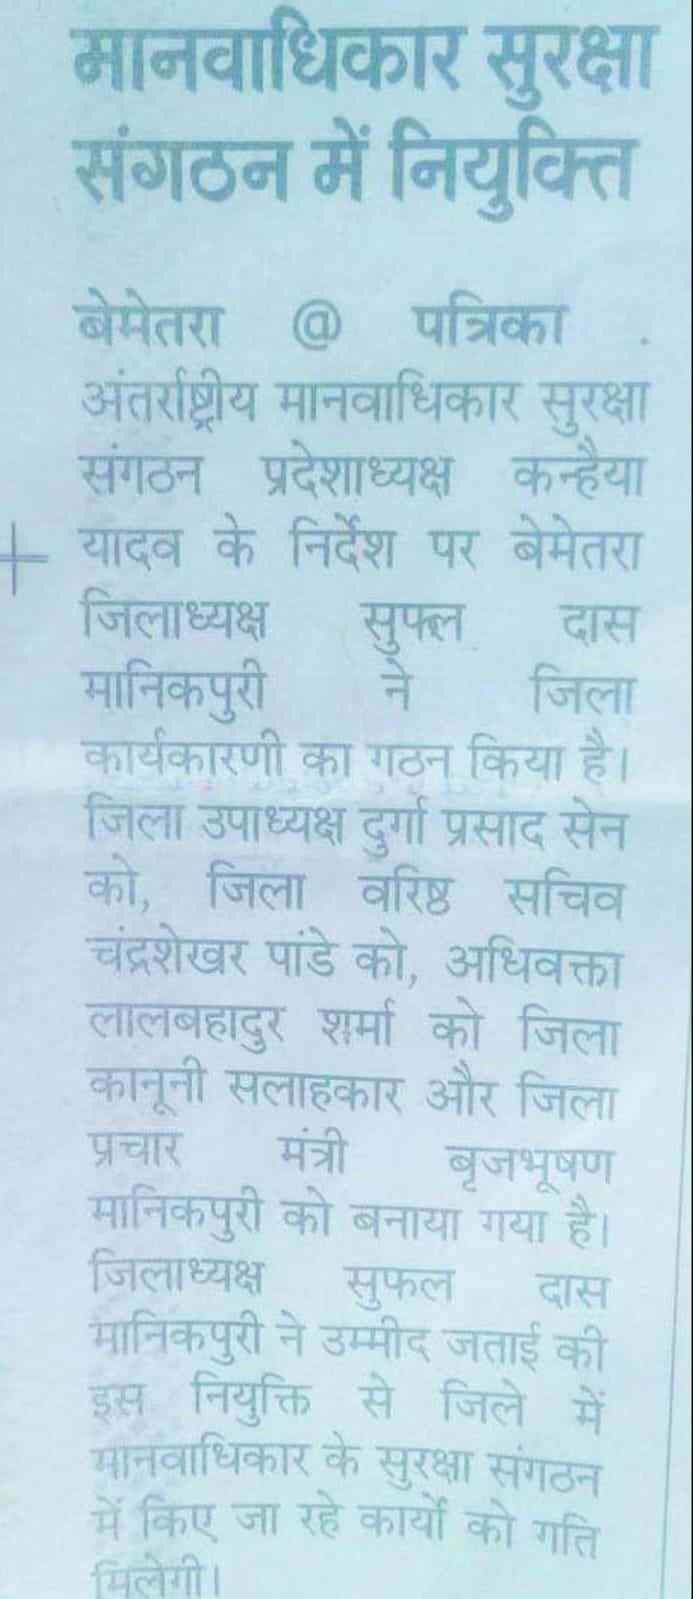 मानवाधिकार सुरक्षा
संगठन में नियुक्ति
बेमेतरा @ पत्रिका .
अंतर्राष्ट्रीय मानवाधिकार सुरक्षा
संगठन प्रदेशाध्यक्ष कन्हैया
यादव के निर्देश पर बेमेतरा
जिलाध्यक्ष सुफल दास
मानिकपुरी ने जिला
कार्यकारणी का गठन किया है।
जिला उपाध्यक्ष दुर्गा प्रसाद सेन
को, जिला वरिष्ठ सचिव
चंद्रशेखर पांडे को, अधिवक्ता
लालबहादुर शर्मा को जिला
कानूनी सलाहकार और जिला
प्रचार मंत्री बृजभूषण
मानिकपुरी को बनाया गया है।
जिलाध्यक्ष सुफल दास
मानिकपुरी ने उम्मीद जताई की
इस नियुक्ति से जिले में
मानवाधिकार के सुरक्षा संगठन
में किए जा रहे कार्यों को गति
मिलेगी।